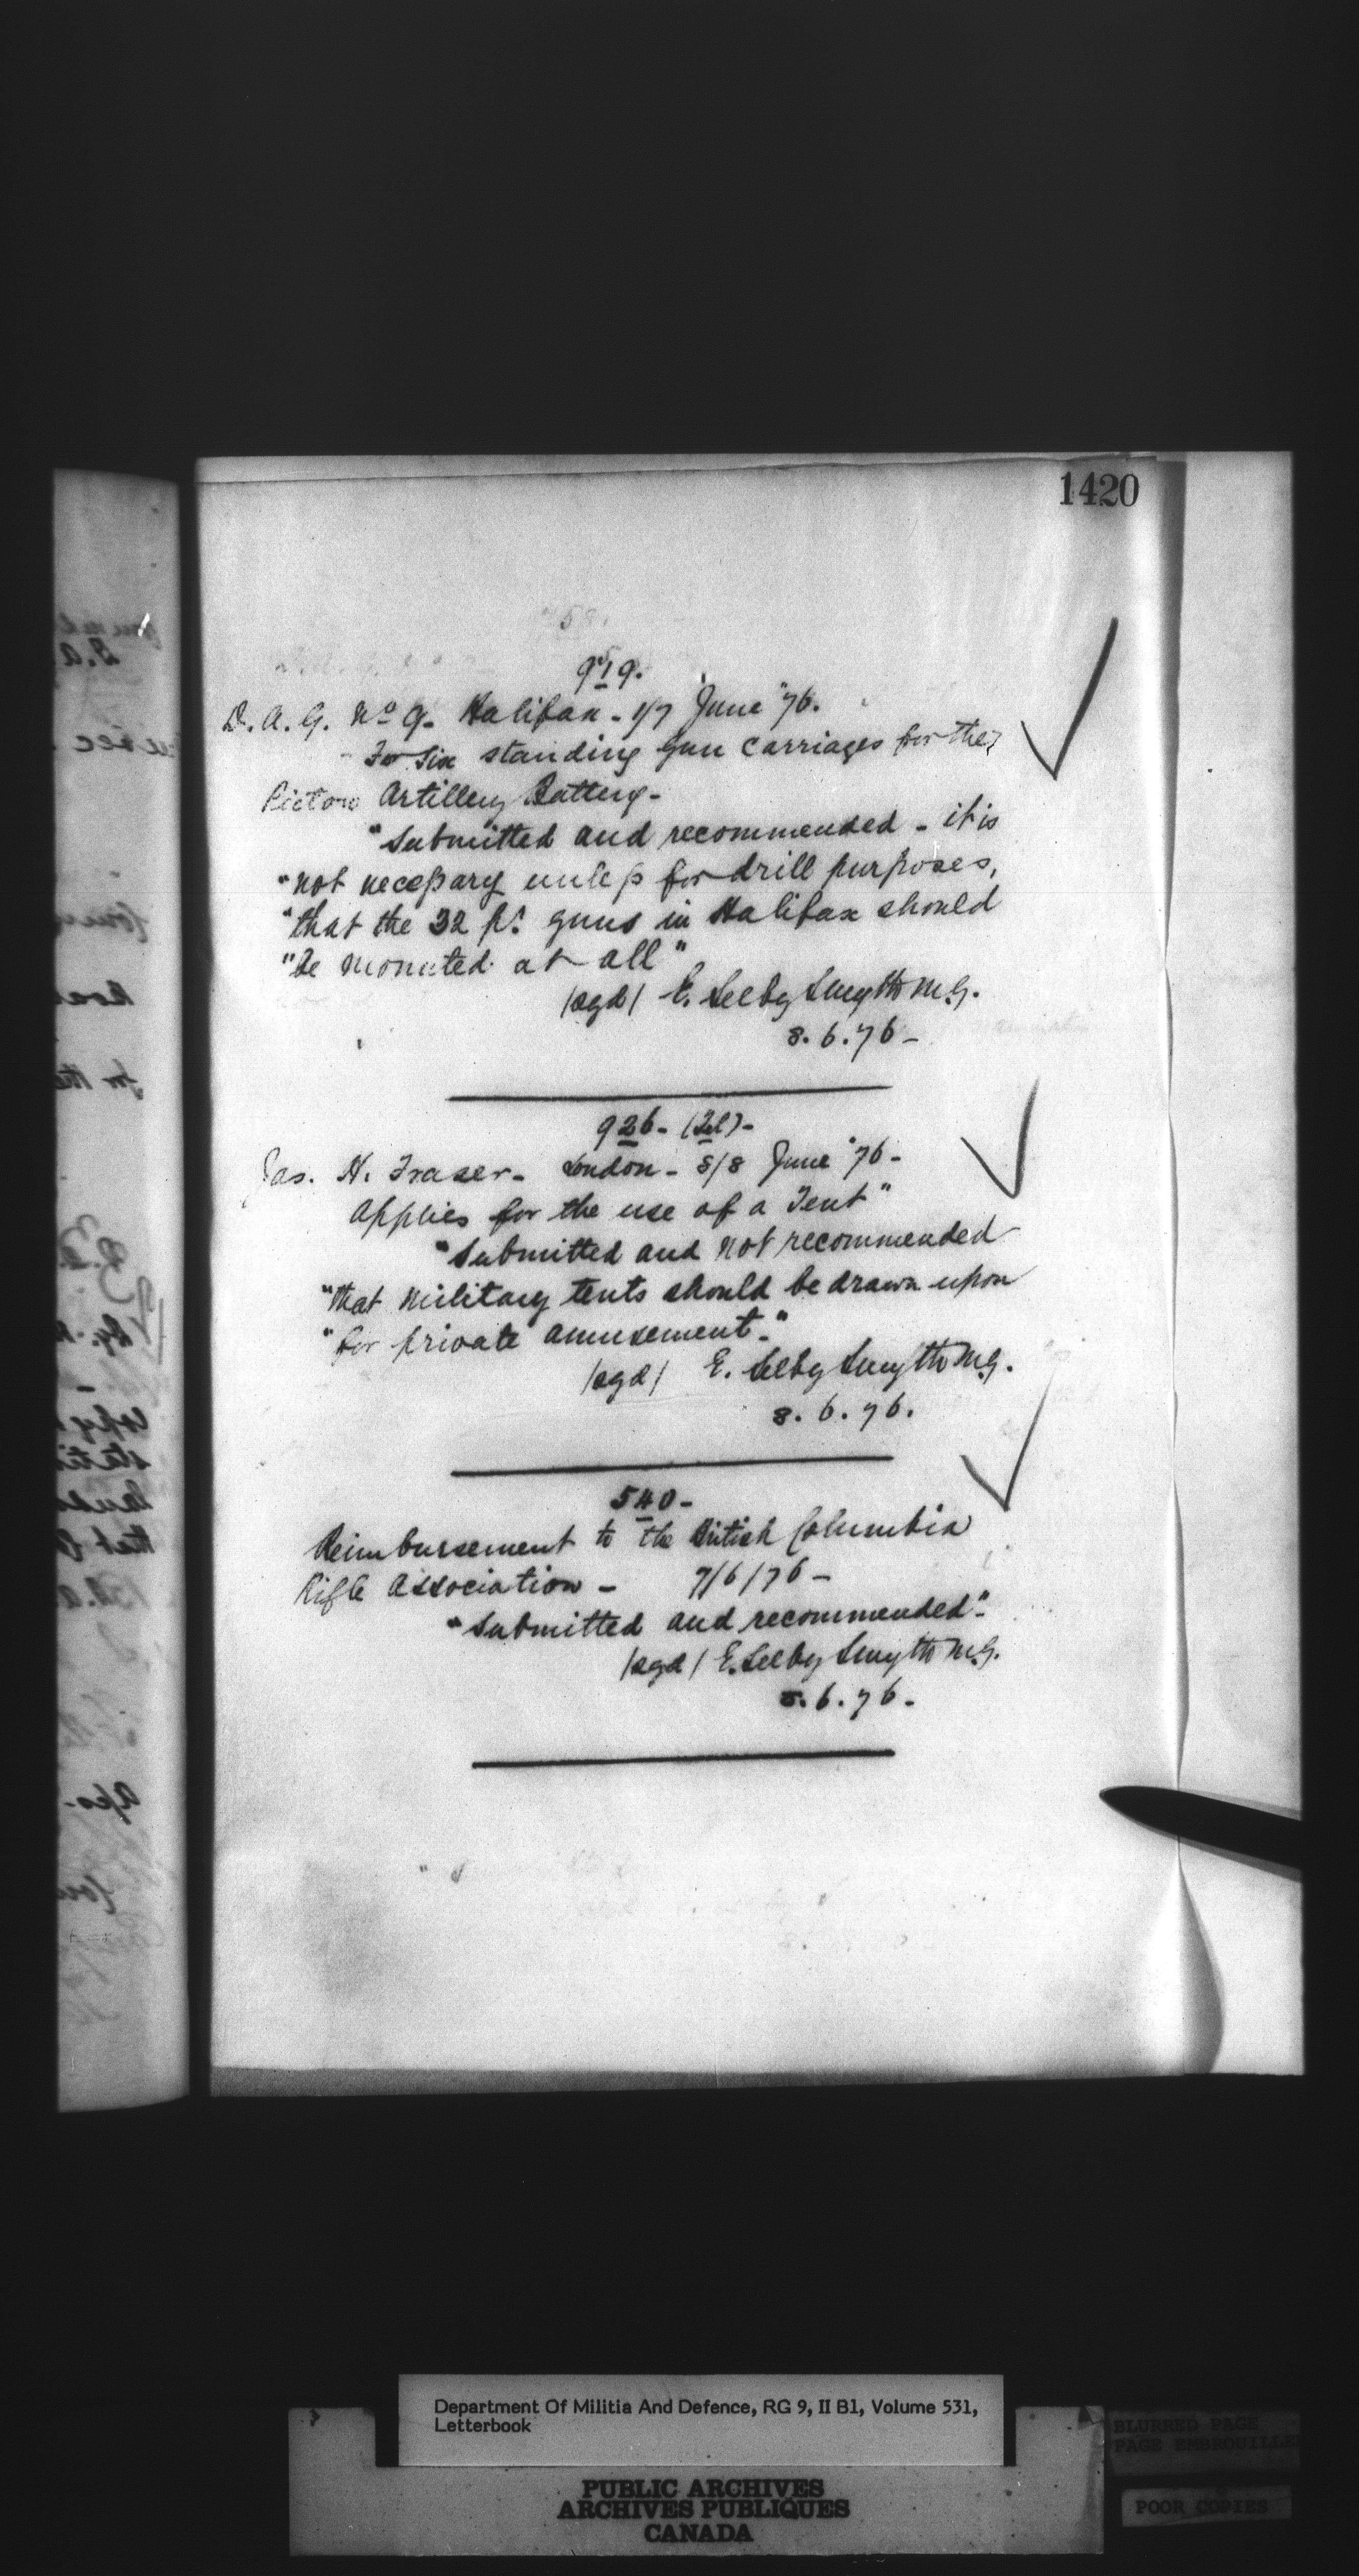 1420
919.
D. A. G. No 9- Halifax - 1/7 June "76.
- For six standing gun carriages for the
Pictou Artillery Battery -
"Submitted and recommended - it is
"not necessary unless for drill purposes,
"that the 32 pr guns in Halifax should
"be mounted at all"
/sgd/ E. Selby Smyth M.G.
8. 6. 76 -
926 - (Tel) -
Jas. H. Fraser - London - 8/8 June "76 -
Applies for the use of a Tent"
"Submitted and not recommended
"that military tents should be drawn upon
"for private amusement."
/sgd/ E. Selby Smyth M.G.
8. 6. 76.
540 -
Reimbursement to the British Columbia
Rifle Association - 7/6/76 -
"Submitted and recommended".
/sgd/ E. Selby Smyth M.G.
8. 6. 76 -
Department Of Militia And Defence, RG 9, II B1, Volume 531,
Letterbook
BLURRED PAGE
PAGE EMBROUILLEE
POOR COPIES
PUBLIC ARCHIVES
ARCHIVES PUBLIQUES
CANADA